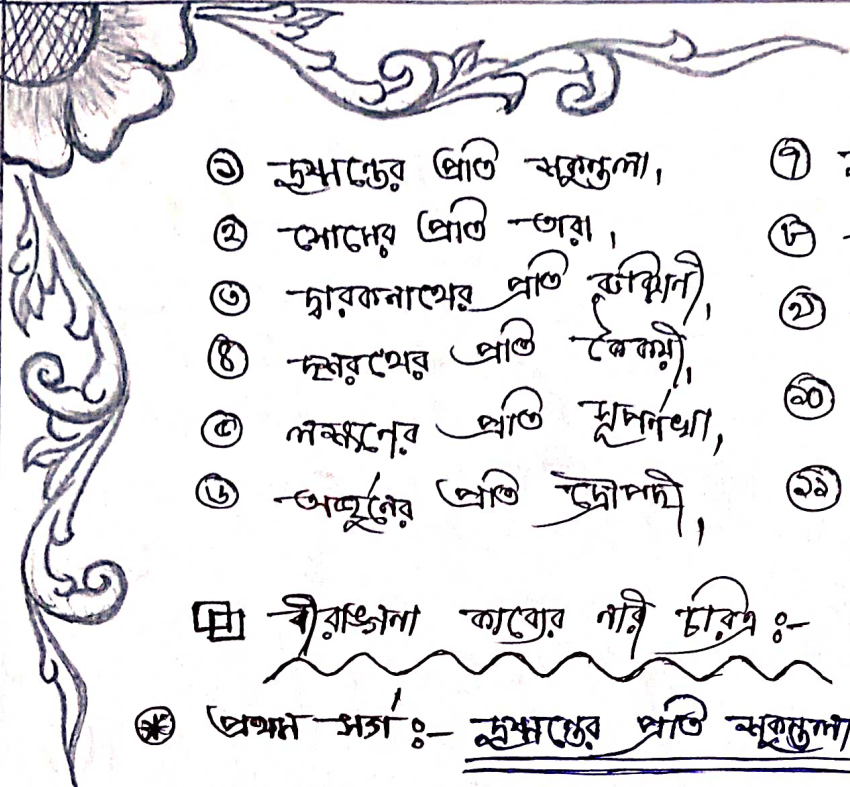 ১ দুষ্মন্তের প্রতি শকুন্তলা, ৭
২ সোমের প্রতি তারা, ৮
৩ দ্বারকানাথের প্রতি রুক্মিণী, ৯
৪ দশরথের প্রতি কৈকয়ী, ১০
৫ লক্ষ্মণের প্রতি সূপর্ণখা, ১১
৬ অর্জুনের প্রতি দ্রৌপদী,
বীরাঙ্গনা কাব্যের নারী চরিত্র :-
প্রথম সর্গ :- দুষ্মন্তের প্রতি শকুন্তলা